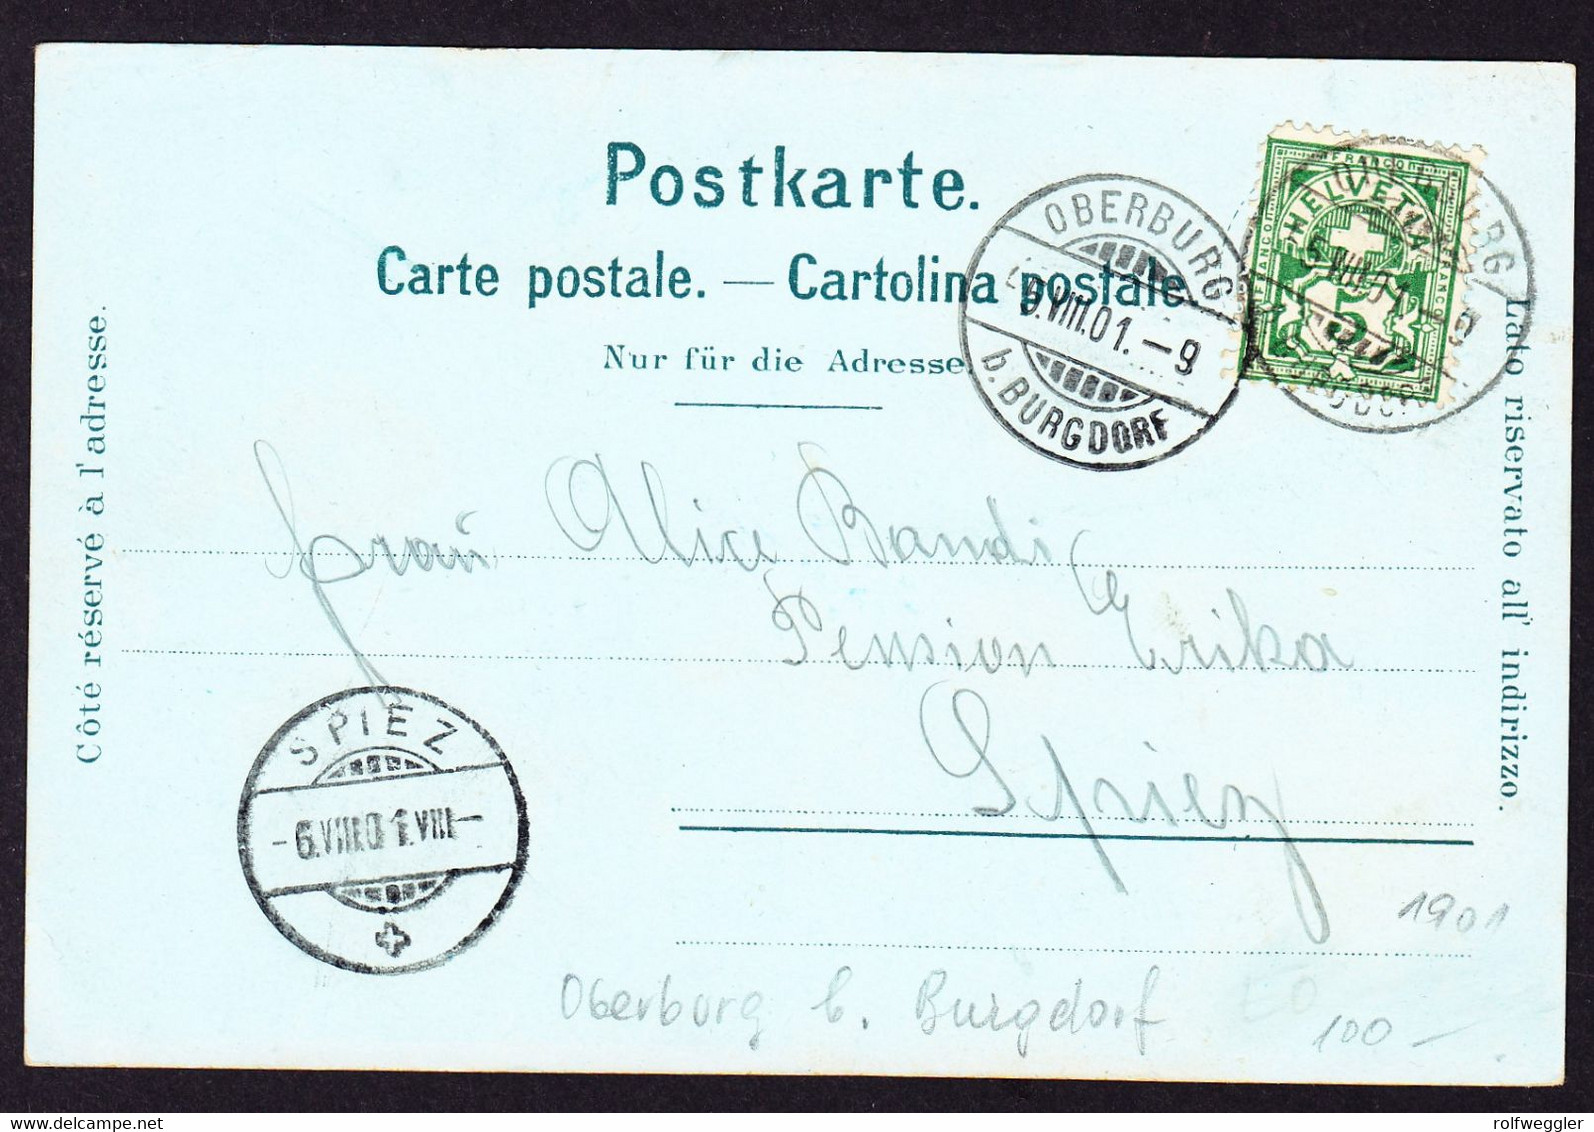 Postkarte.
Carte postale. — Cartolina postale
Nur für die Adresse.
Côté réservé à l'adresse.
Lato riservato all' indirizzo.
OBERBURG
VIII.01.-9
b. BURGDORF
FRANCO
HELVETIA
5
5.VIII.01.-9
Frau Alice Bandi
Pension Erika
Spiez
SPIEZ
-6.VIII.01.VIII-
1901
Oberburg b. Burgdorf
100 -
rolfweggler